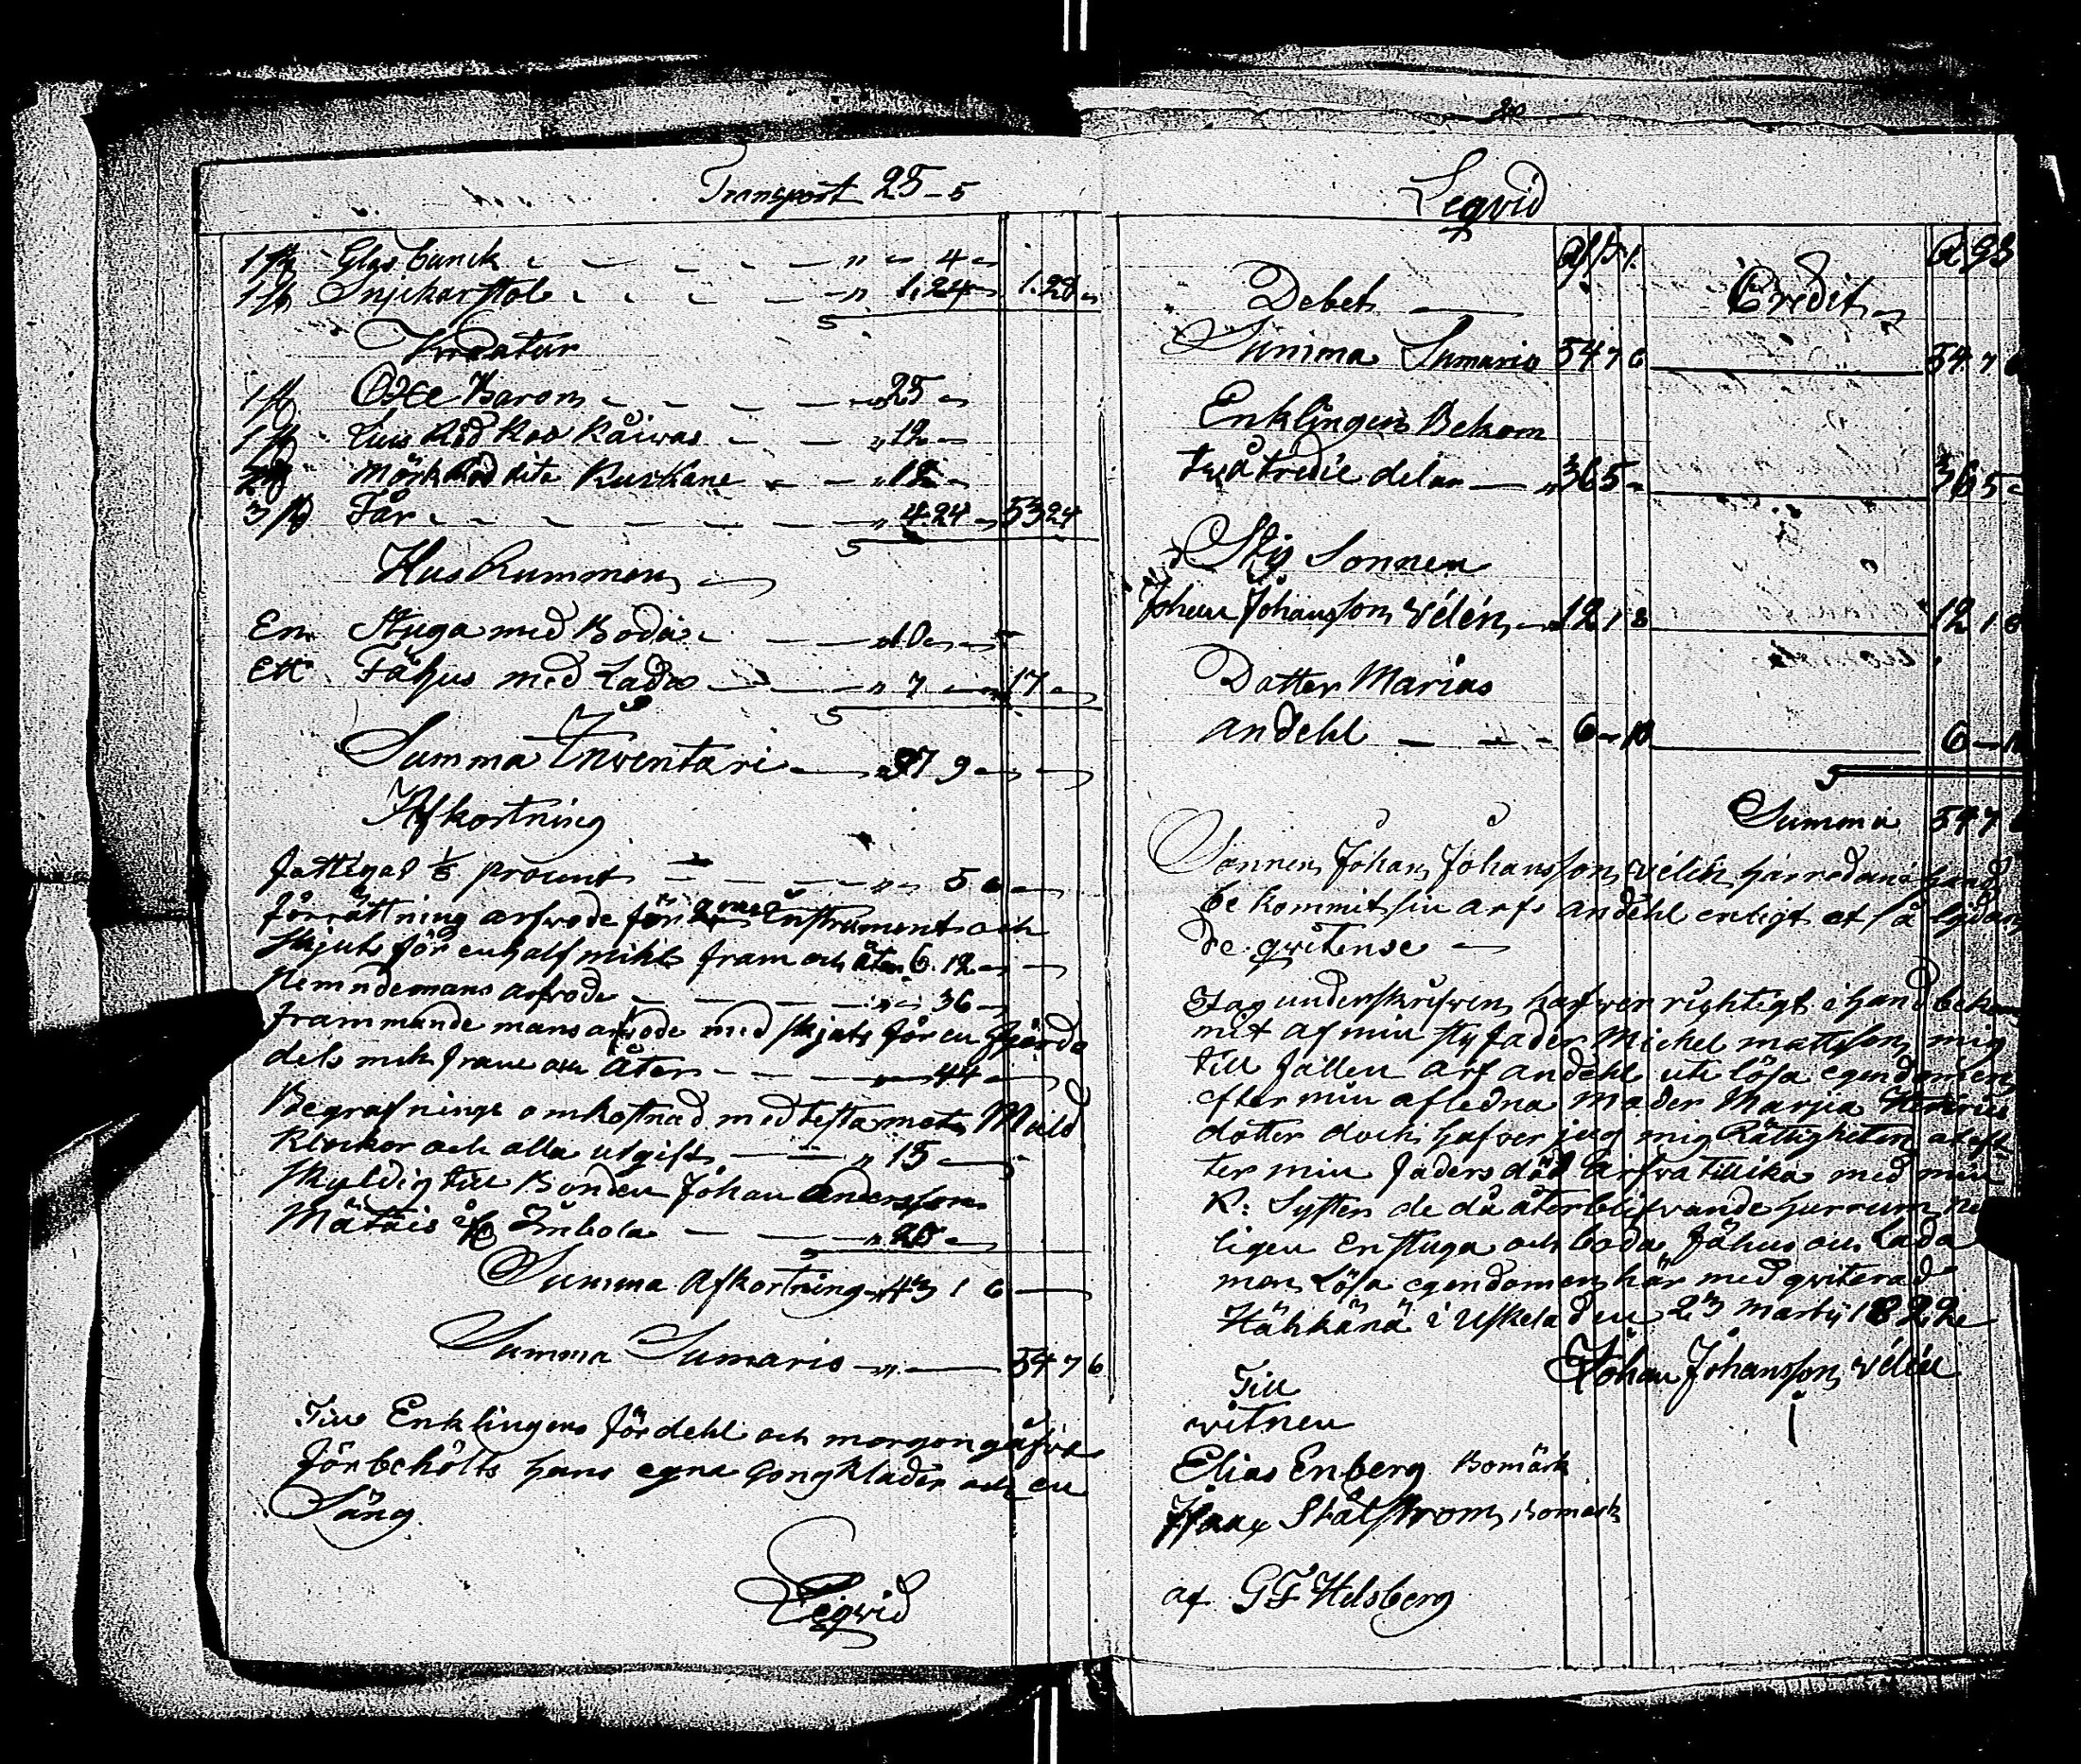 Transport 25 - 5
1 st Glas banck - - - - - " - 4 -
1 st Snickar stol - - - - " 1.24 - 1.28 -
Kreatur
1 st Oxe Baron - - - - " 25 -
1 st Lius Röd Ko Käiwas - - " 12 -
Mörk Röd dito Ruskane - - " 12 -
3 st Får - - - - - - " 4.24 - 53 24
Hus Rummen
En Stuga med Boda - - - " 10 - -
Ett Fähus med Lada - - " 7 - 17 -
Summa Inventari - 97 9 -
Afkortning
fattigas 1/8 procent - - - - " - 5 6 -
förrättning arfwode för Instrument och
skjuts för en half mihl fram och åter 6. 12 -
Nemndemans arfvode - - - - " - 36 -
frammande mans arfvode med skjuts för en fjärde
dels mihl fram och Åter - - - " 44 -
Begrafnings omkostnad med testamente Mull
Klockor och alla utgift - - " 15 -
skyldig till Bonden Johan Andersson
Mätäis i Imbola - - - " 20 -
Summa Afkortning - 43 1 6
Summa Sumaris - " - 54 7 6
Till Enklingens fördehl och morgongåfwa
förbehölts hans egna Gongkläder och en
Säng
Liqvid
Liqvid
Debet
Credit
Summa Sumario 54 7 6 54. 7 6
Enklingen Bekom
twå tredie delar - " 36 5 - 36 5 -
Sty Sonnen
Johan Johansson Vélén - 12 1 8 12 1 8
Dotter Marias
andehl - - - 6 - 10 6 - 10
Summa 54 7 6
Sonnen Johan Johansson Vélén har redan i hand
be kommit sin arfs andehl enligt et så lydan
de qwitense -
Jag underskrifwen hafwer rightigt i hand bekom
mit af min styfader Michel mattsson mig
till fallen arf andehl uti lösa egendomen
efter min afledna Moder Marjia
dotter dock hafver jag mig Rättigheten at ef
ter min faders död ärfva tillika med min
K: Syster de då återblifvande husrum
ligen en stuga och boda, fähus och Lada
men Lösa egendomen här med qwiterad
Hähkänä i Uskela den 23 Martij 1822
Johan Johansson Vélén
Till
witnen
Elias Enberg Bomärk
Isaac Stålstrom Bomerk
af GF Helsberg